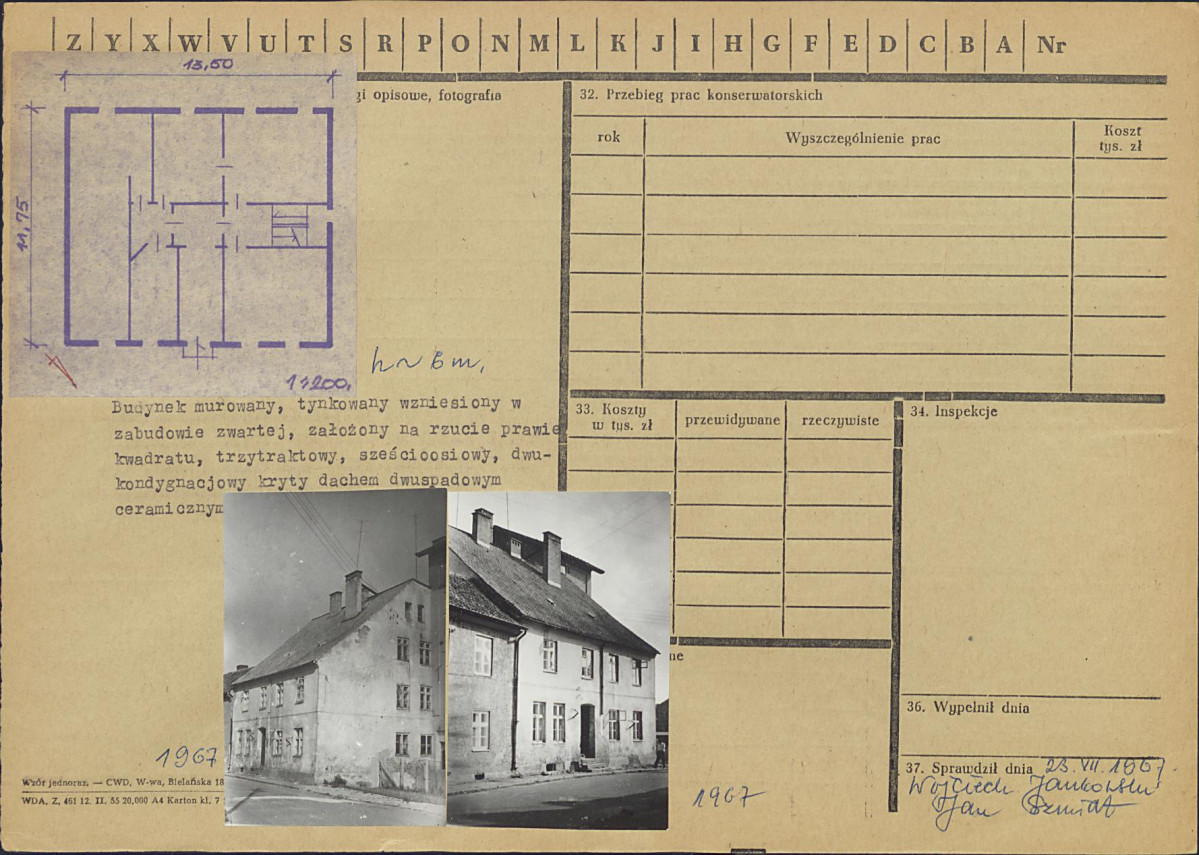 Z Y X W V U T S R P O N M L K J I H G F E D C B A Nr
13,50
11,75
1:200,
gi opisowe, fotografia
h ~ 6 m,
Budynek murowany, tynkowany wzniesiony w
zabudowie zwartej, założony na rzucie prawie
kwadratu, trzytraktowy, sześcioosiowy, dwu-
kondygnacjowy kryty dachem dwuspadowym
ceramicznym
1967
1967
Wzór jednoraz. — CWD, W-wa, Bielańska 18
WDA, Z, 461 12. II. 55 20,000 A4 Karton kl. 7
32. Przebieg prac konserwatorskich
rok
Wyszczególnienie prac
Koszt
tys. zł
33. Koszty
w tys. zł
przewidywane
rzeczywiste
34. Inspekcje
ne
36. Wypełnił dnia
37. Sprawdził dnia 23. VII. 1967.
Wojciech Jankowski
Jan Szmidt